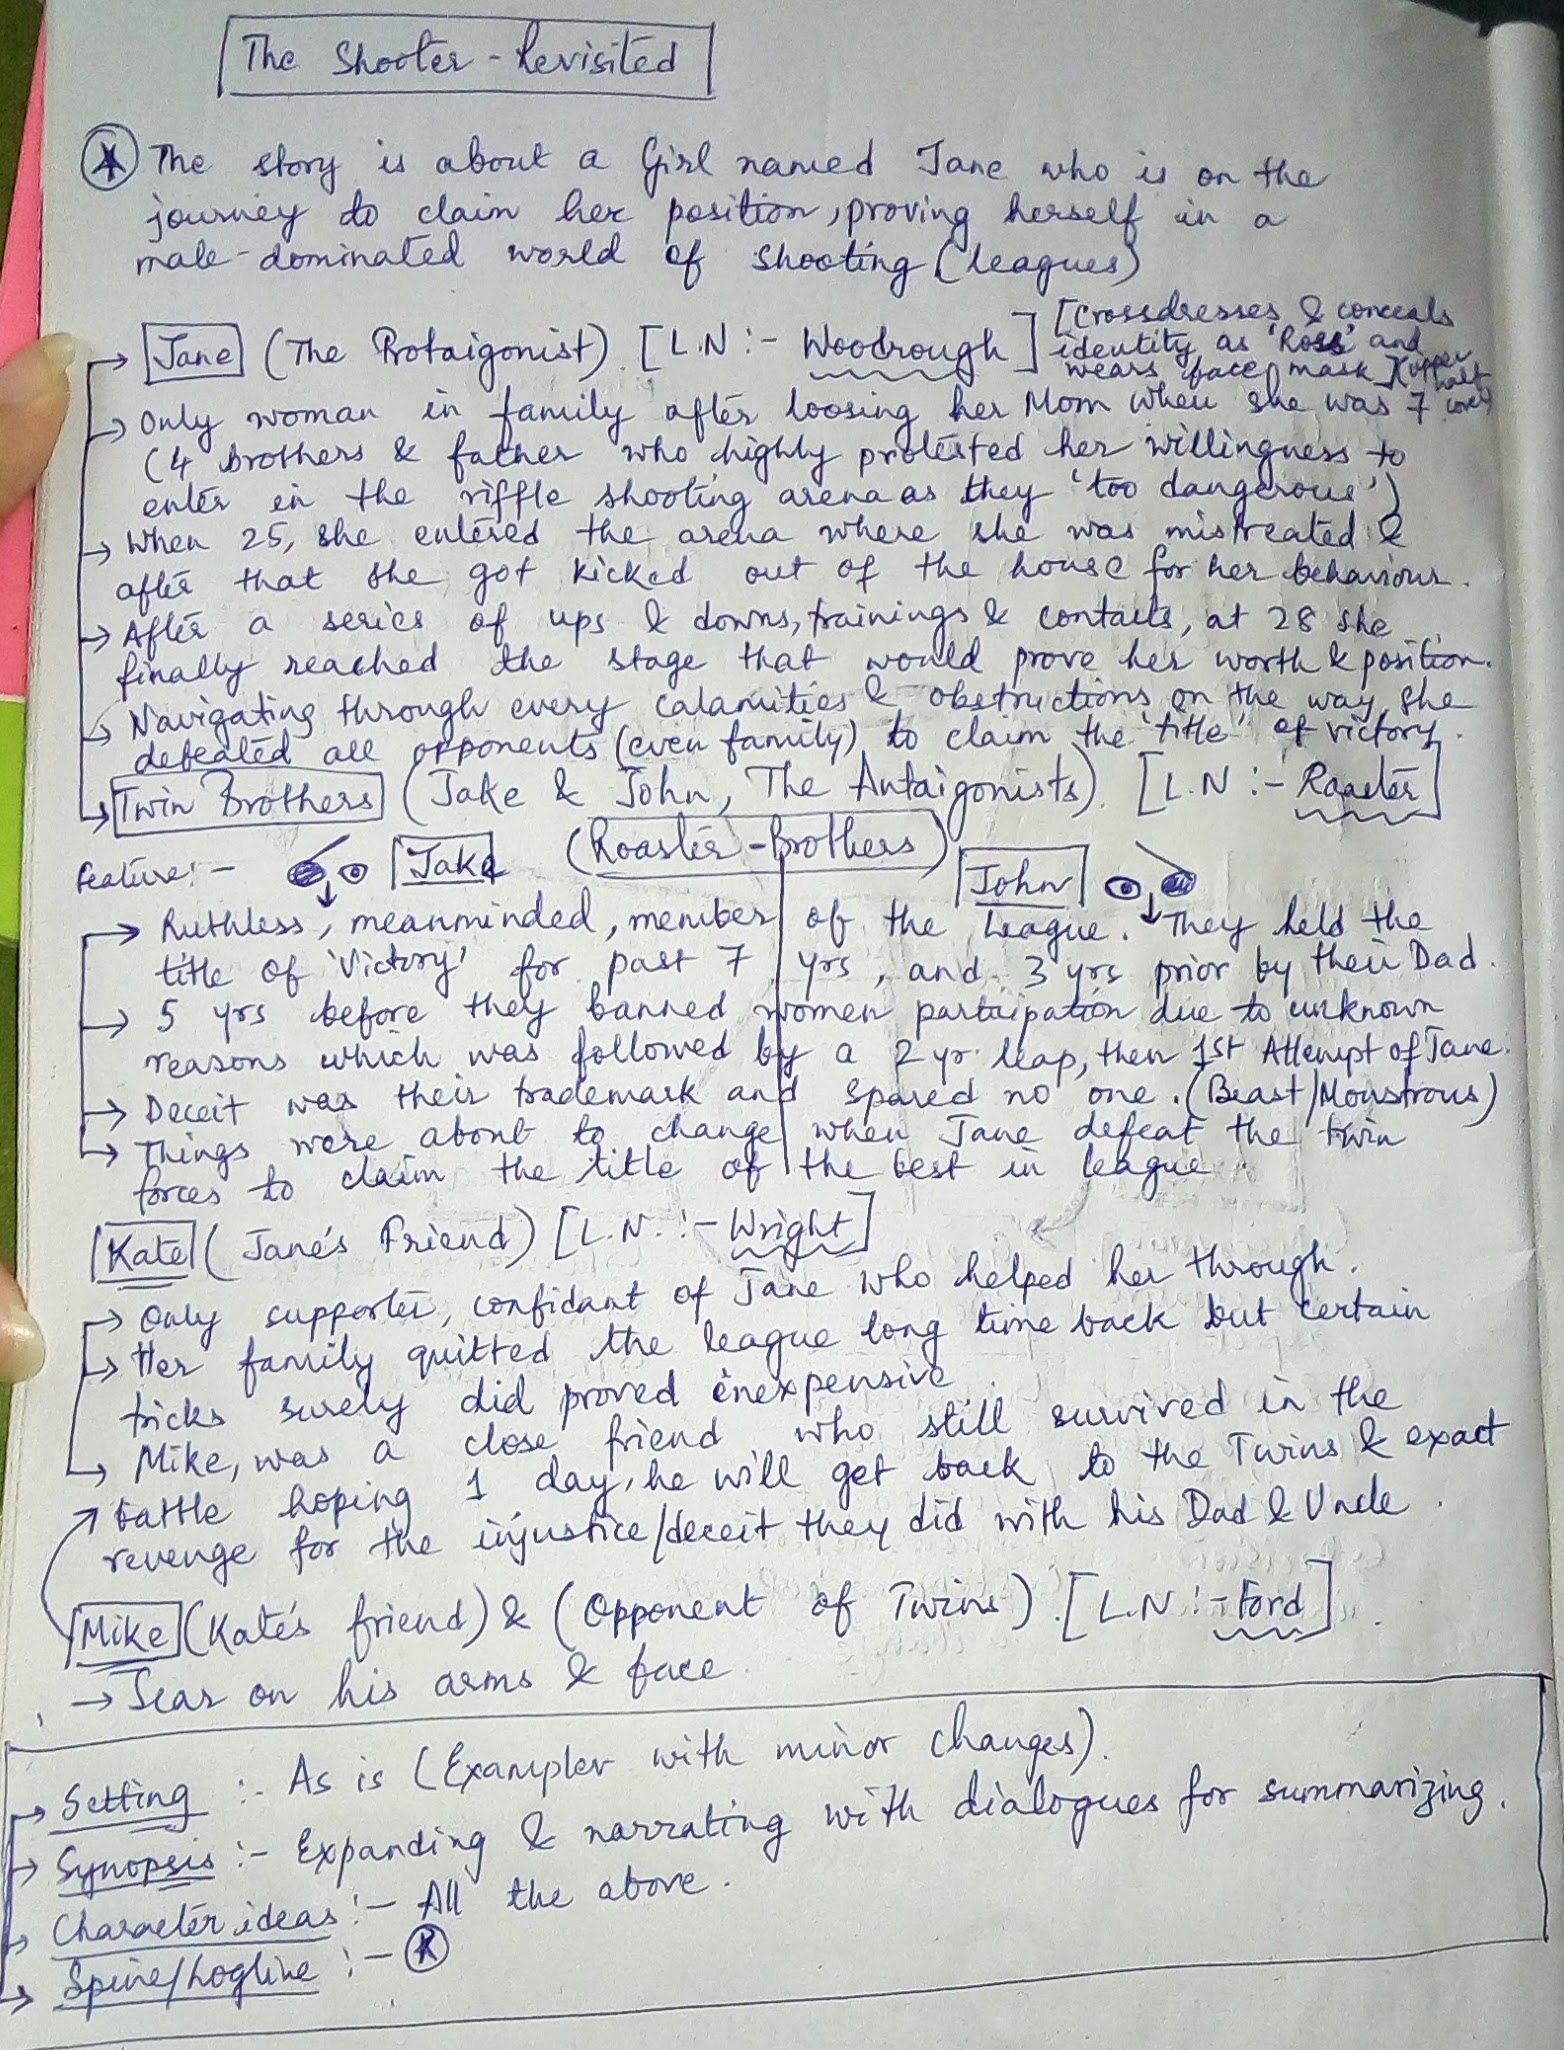 The Shooter - Revisited
The story is about a Girl named Jane who is on the
journey to claim her position, proving herself in a
male-dominated world of shooting (leagues)
Jane (The Protaigonist). [L.N :- Woodrough] [Crossdresses & conceals
identity as 'Ross' and
wears face mask] (upper half cover)
Only woman in family after loosing her Mom when she was 7
(4 brothers & father who highly protested her willingness to
enter in the riffle shooting arena as they 'too dangerous')
When 25, she entered the arena where she was mistreated &
after that she got kicked out of the house for her behaviour.
After a series of ups & downs, trainings & contacts, at 28 she
finally reached the stage that would prove her worth & position.
Navigating through every calamities & obstructions on the way, she
defeated all opponents (even family) to claim the 'title' of victory.
Twin Brothers (Jake & John, The Antaigonists). [L.N :- Roaster]
(Roaster-Brothers)
Feature:- Jake John
Ruthless, meanminded, member of the League. They held the
title of 'Victory' for past 7 yrs, and 3 yrs prior by their Dad.
5 yrs before they banned women partcipation due to unknown
reasons which was followed by a 2 yr leap, then 1st Attempt of Jane.
Deceit was their trademark and spared no one. (Beast/Monstrous)
Things were about to change when Jane defeat the twin
forces to claim the title of the best in league.
Kate (Jane's Friend) [L.N. :- Wright]
Only supporter, confidant of Jane who helped her through.
Her family quitted the league long time back but certain
tricks surely did proved inexpensive
Mike, was a close friend who still survived in the
battle hoping 1 day, he will get back to the Twins & exact
revenge for the injustice/deceit they did with his Dad & Uncle.
Mike (Kate's friend) & (Opponent of Twins). [L.N :- Ford].
Scar on his arms & face.
Setting :- As is (Exampler with minor changes).
Synopsis :- Expanding & narrating with dialogues for summarizing.
Character ideas :- All the above.
Spine/Logline :-